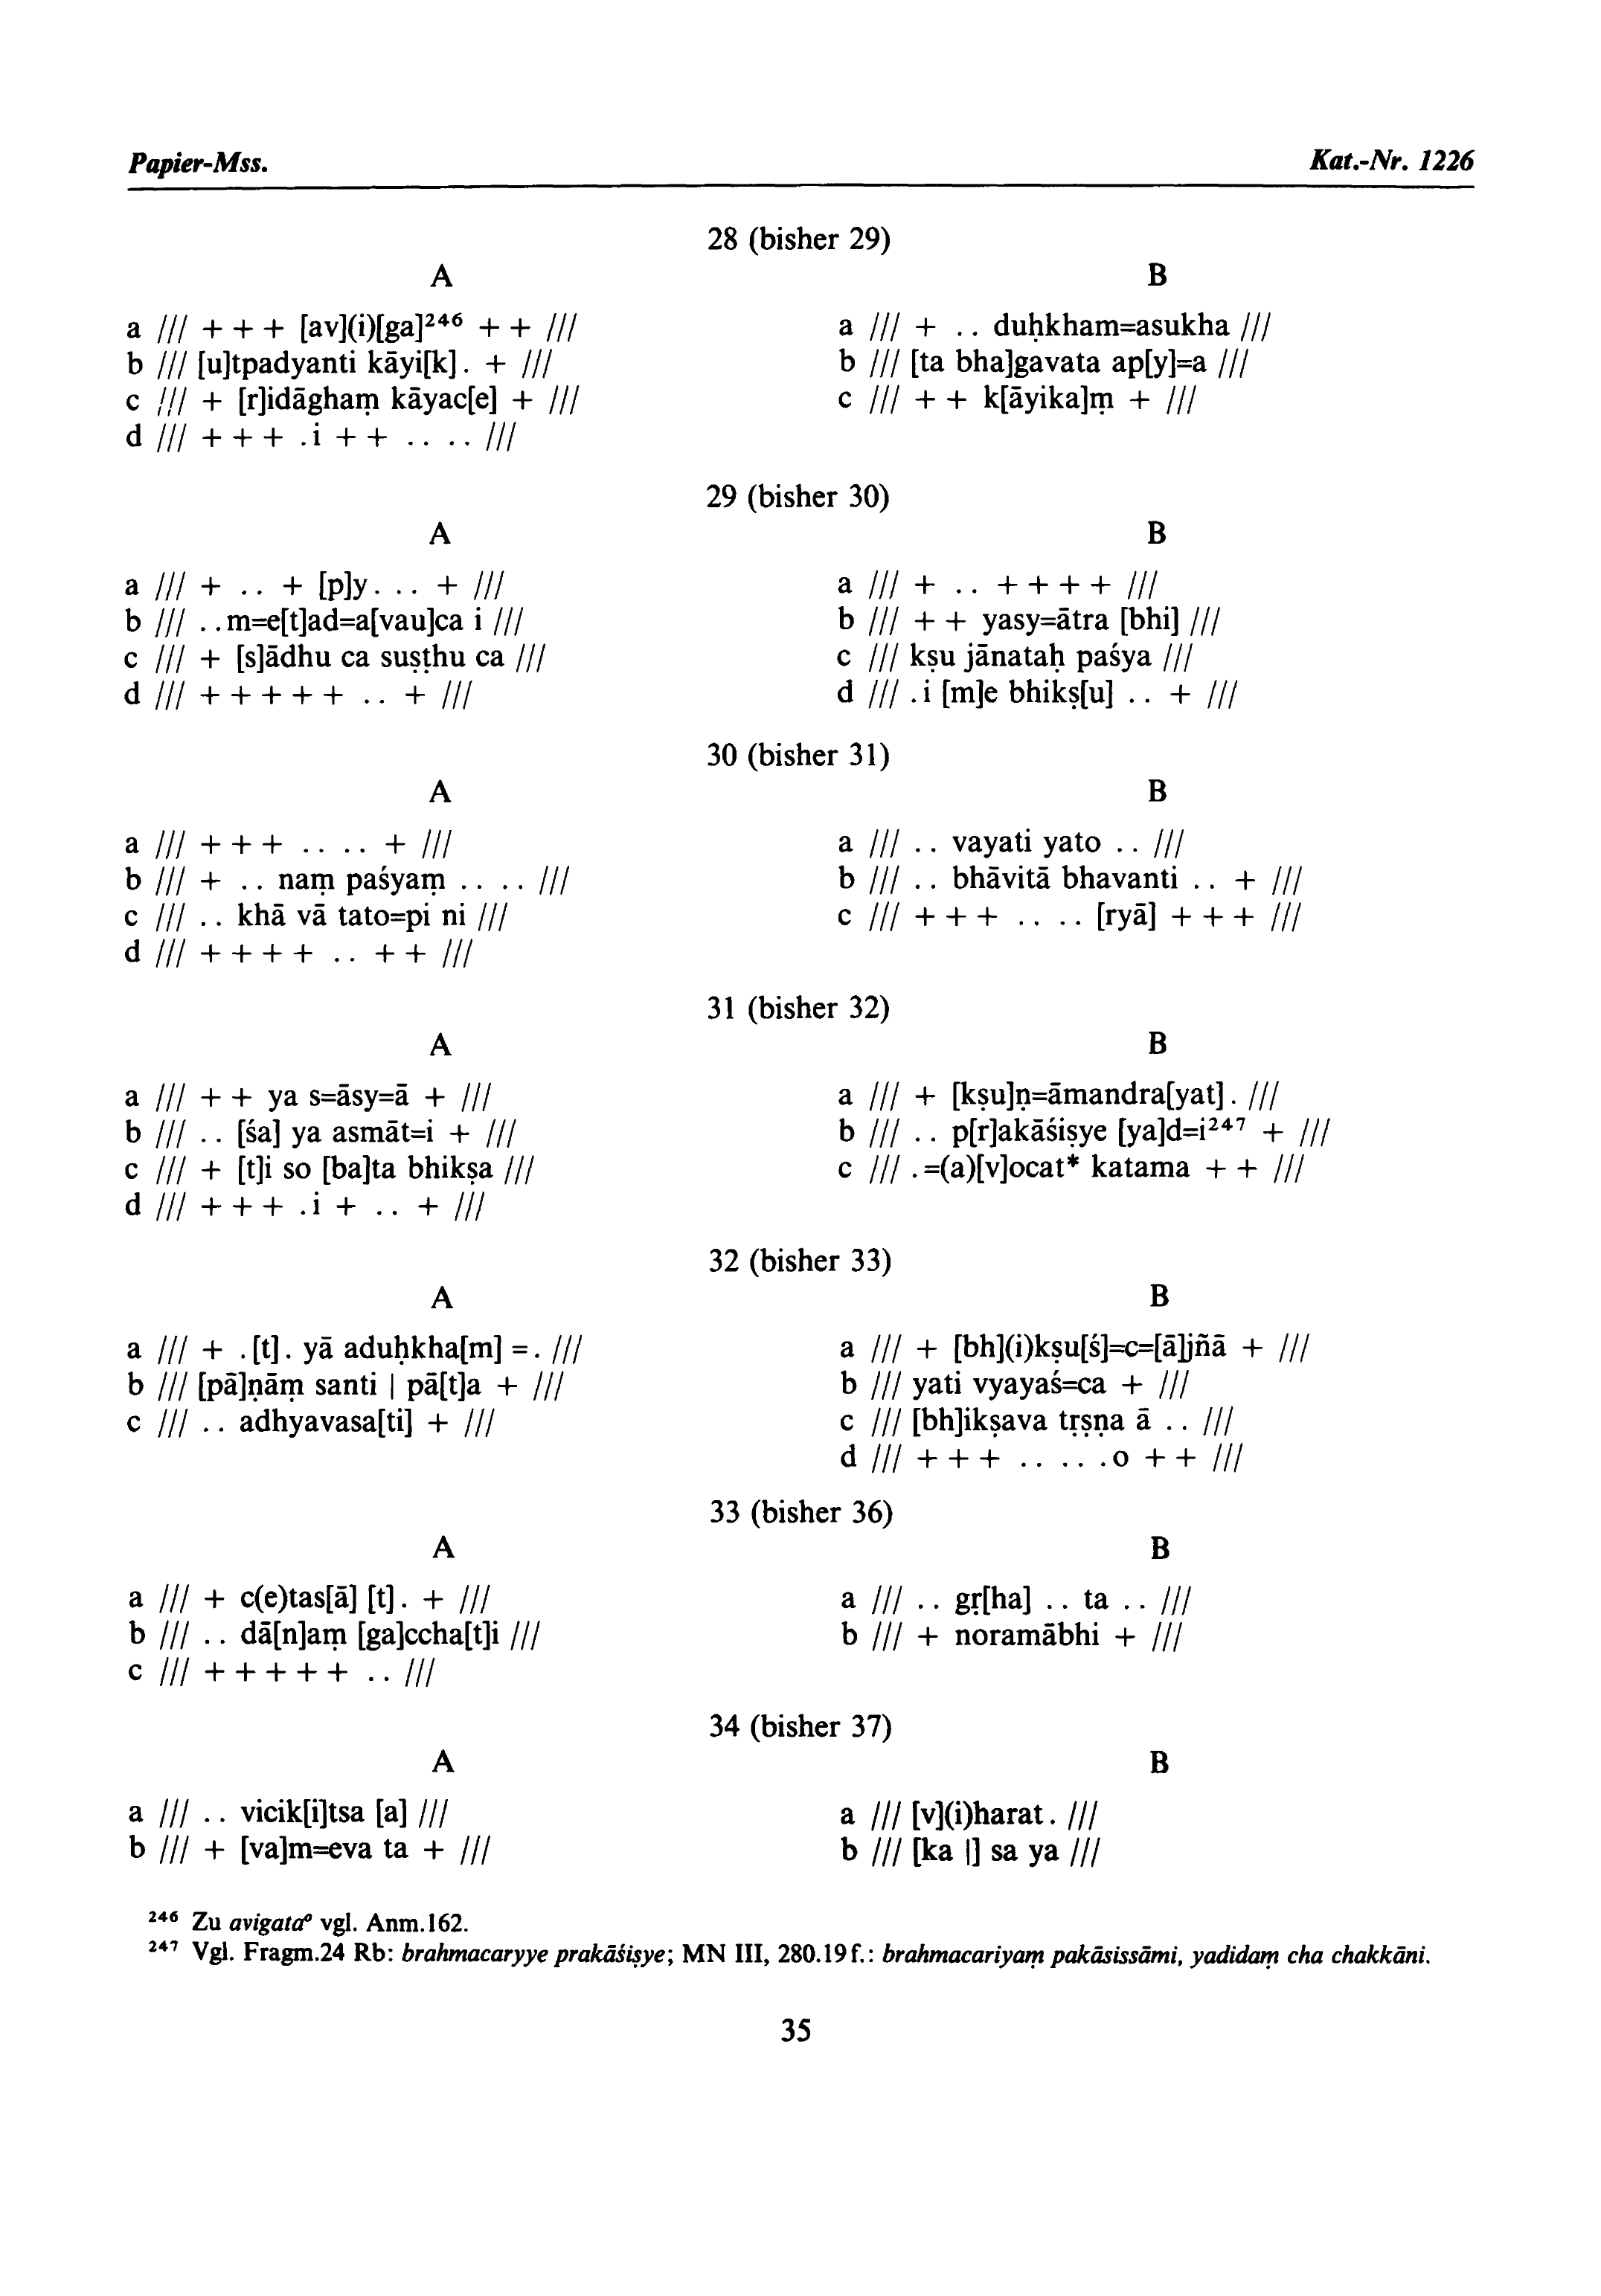 Papier-Mss. Kat.-Nr. 1226
28 (bisher 29)
A
a /// + + + [av](i)[ga]²⁴⁶ + + ///
b /// [u]tpadyanti kāyi[k] . + ///
c /// + [r]idāghaṃ kāyac[e] + ///
d /// + + + .i + + .. .. ///
B
a /// + .. duḥkham=asukha ///
b /// [ta bha]gavata ap[y]=a ///
c /// + + k[āyika]ṃ + ///
29 (bisher 30)
A
a /// + .. + [p]y. .. + ///
b /// ..m=e[t]ad=a[vau]ca i ///
c /// + [s]ādhu ca suṣṭhu ca ///
d /// + + + + + .. + ///
B
a /// + .. + + + + ///
b /// + + yasy=ātra [bhi] ///
c /// kṣu jānataḥ paśya ///
d /// .i [m]e bhikṣ[u] .. + ///
30 (bisher 31)
A
a /// + + + .. .. + ///
b /// + .. naṃ paśyaṃ .. .. ///
c /// .. khā vā tato=pi ni ///
d /// + + + + .. + + ///
B
a /// .. vayati yato .. ///
b /// .. bhāvitā bhavanti .. + ///
c /// + + + .. .. [ryā] + + + ///
31 (bisher 32)
A
a /// + + ya s=āsy=ā + ///
b /// .. [śa] ya asmāt=i + ///
c /// + [t]i so [ba]ta bhikṣa ///
d /// + + + .i + .. + ///
B
a /// + [kṣu]ṇ=āmandra[yat] . ///
b /// .. p[r]akāśiṣye [ya]d=i²⁴⁷ + ///
c /// .=(a)[v]ocat* katama + + ///
32 (bisher 33)
A
a /// + .[t]. yā aduḥkha[m] =. ///
b /// [pā]ṇāṃ santi | pā[t]a + ///
c /// .. adhyavasa[ti] + ///
B
a /// + [bh](i)kṣu[ś]=c=[ā]jñā + ///
b /// yati vyayaś=ca + ///
c /// [bh]ikṣava tṛṣṇa ā .. ///
d /// + + + .. .. .o + + ///
33 (bisher 36)
A
a /// + c(e)tas[ā] [t] . + ///
b /// .. dā[n]aṃ [ga]ccha[t]i ///
c /// + + + + + .. ///
B
a /// .. gṛ[ha] .. ta .. ///
b /// + noramābhi + ///
34 (bisher 37)
A
a /// .. vicik[i]tsa [a] ///
b /// + [va]m=eva ta + ///
B
a /// [v](i)harat . ///
b /// [ka |] sa ya ///
²⁴⁶ Zu avigata° vgl. Anm.162.
²⁴⁷ Vgl. Fragm.24 Rb: brahmacaryye prakāśiṣye; MN III, 280.19f.: brahmacariyaṃ pakāsissāmi, yadidaṃ cha chakkāni.
35